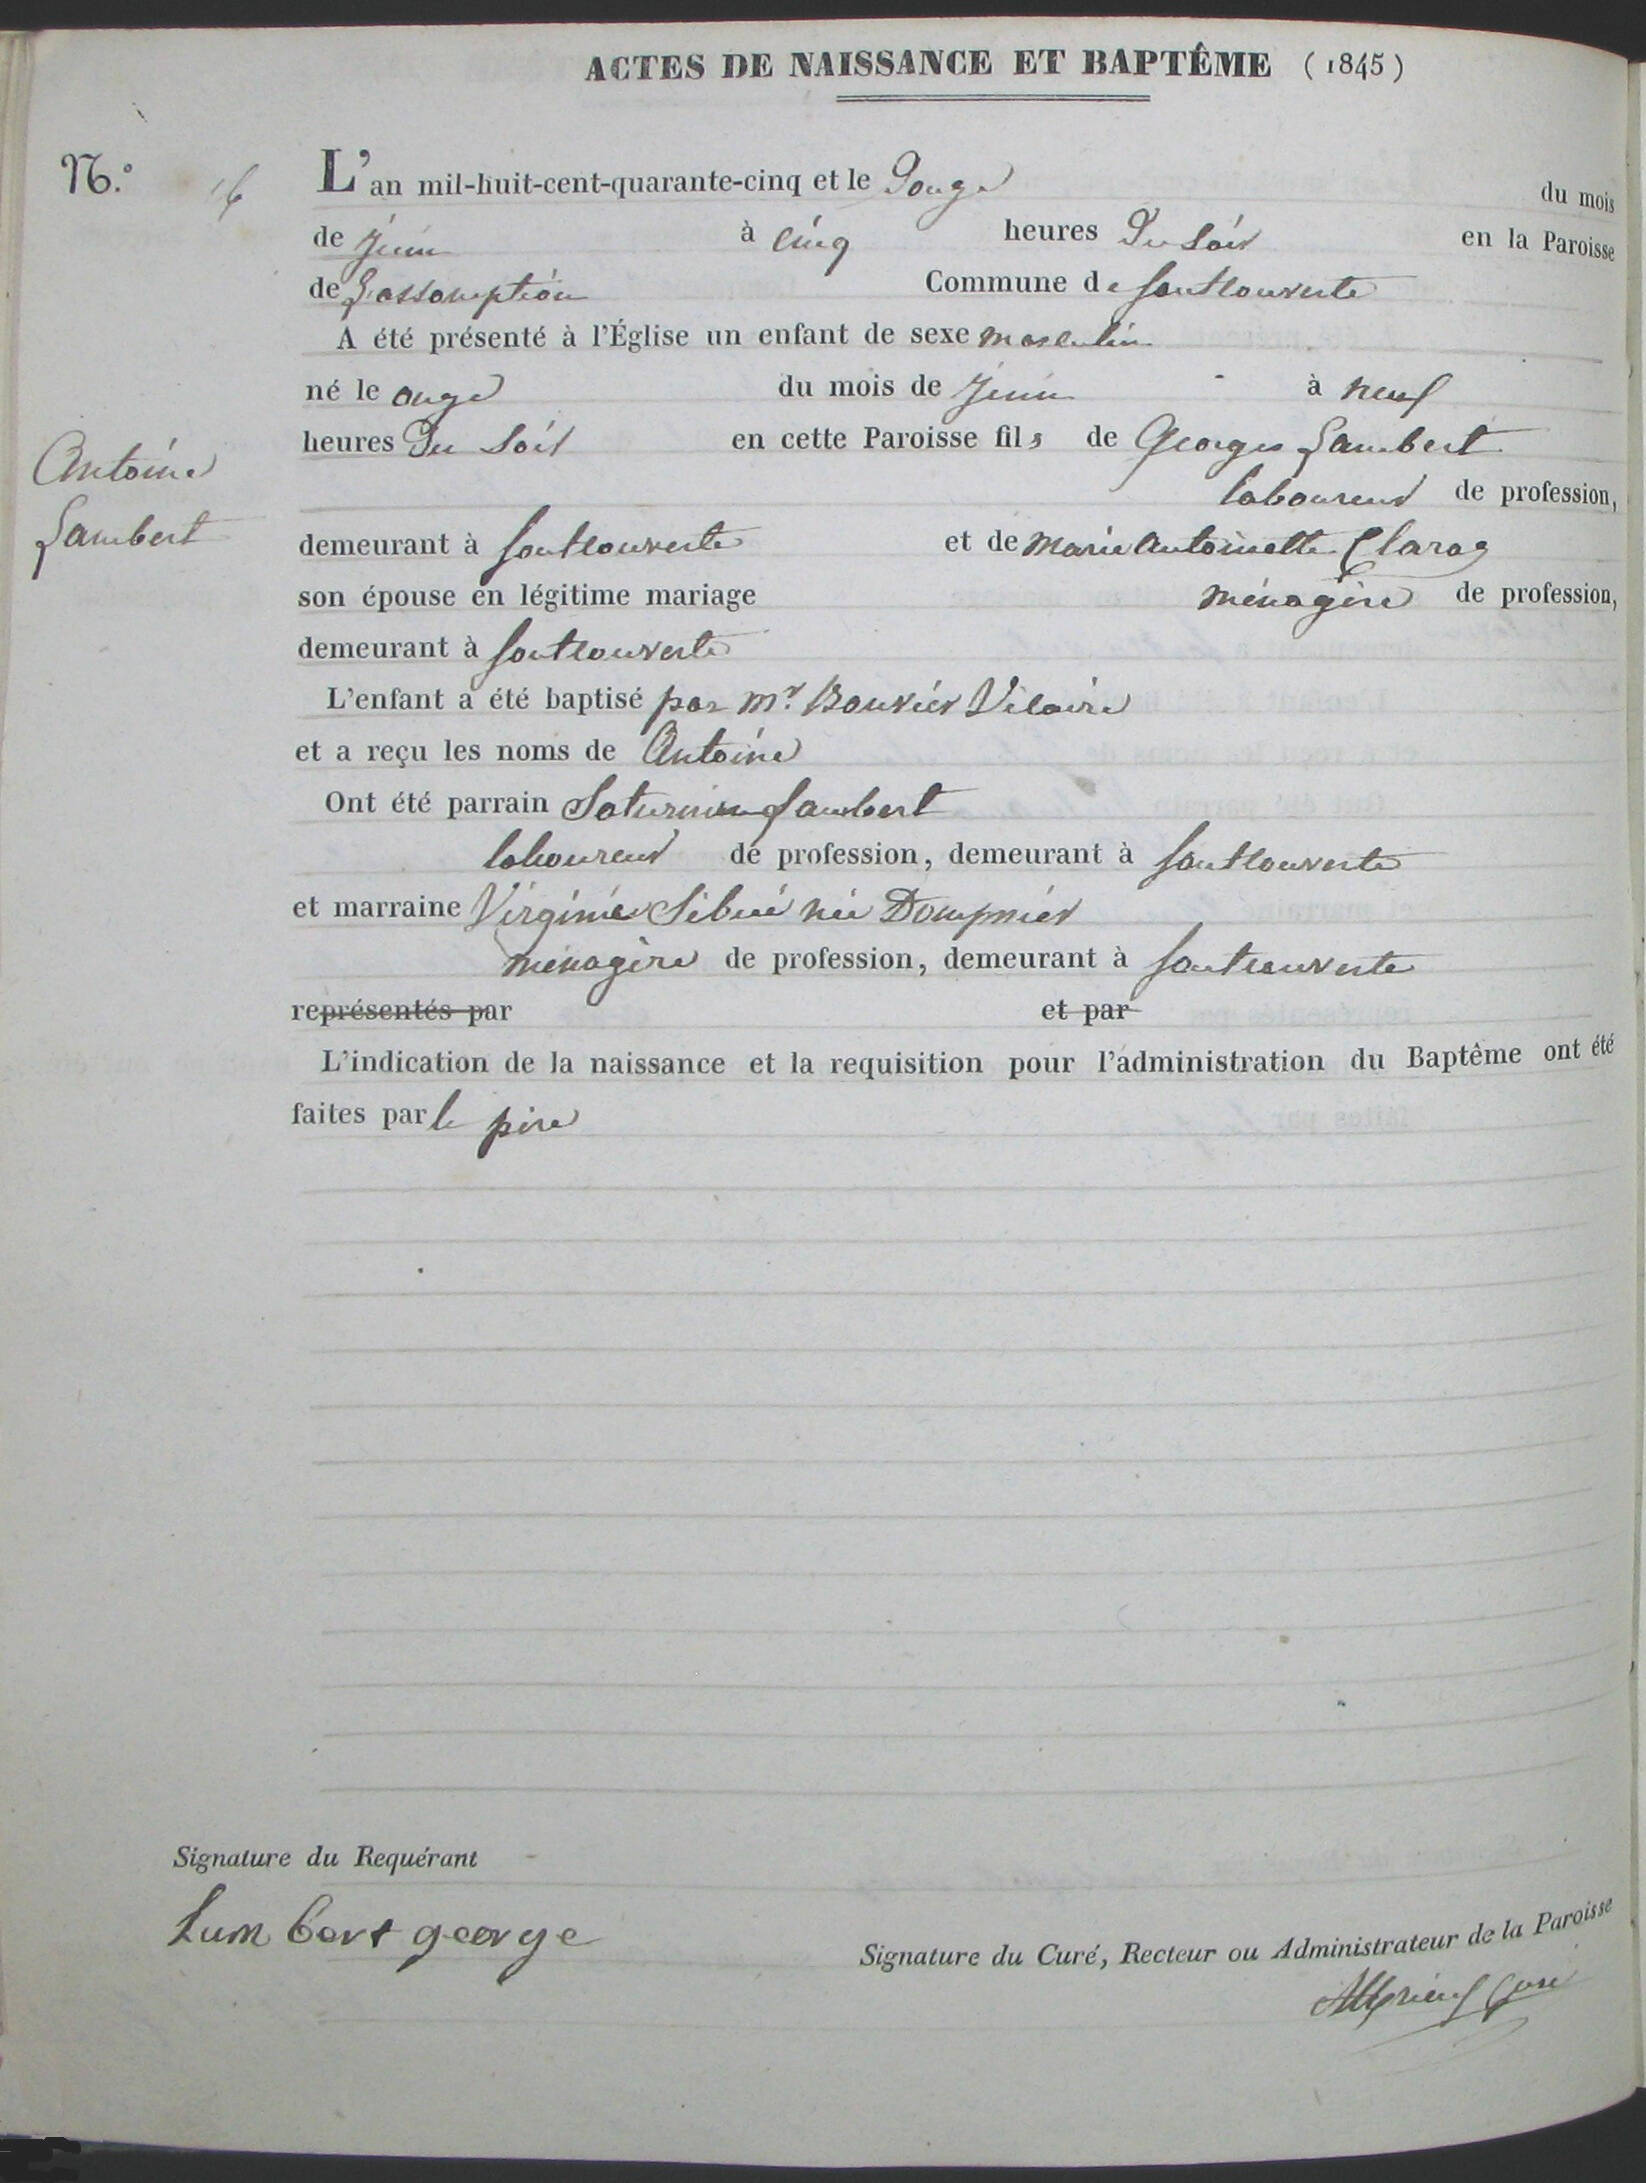 ACTES DE NAISSANCE ET BAPTÊME (1845)
N.° 16
L'an mil-huit-cent-quarante-cinq et le Douze du mois
de Juin à cinq heures Du Soir en la Paroisse
de L'assomption Commune de fontcouverte
A été présenté à l'Église un enfant de sexe masculin
né le onze du mois de Juin à neuf
heures Du Soir en cette Paroisse fils de Georges Lambert
laboureur de profession,
Antoine
Lambert
demeurant à fontcouverte et de marie Antoinette Claraz
son épouse en légitime mariage ménagère de profession,
demeurant à fontcouverte
L'enfant a été baptisé par mr. Bouvier Vicaire
et a reçu les noms de Antoine
Ont été parrain Saturnin Lambert
laboureur de profession, demeurant à fontcouverte
et marraine Virginie Sibué née Dompnier
ménagère de profession, demeurant à fontcouverte
représentés par et par
L'indication de la naissance et la requisition pour l'administration du Baptême ont été
faites par le père
Signature du Requérant
Lambert george
Signature du Curé, Recteur ou Administrateur de la Paroisse
Curé